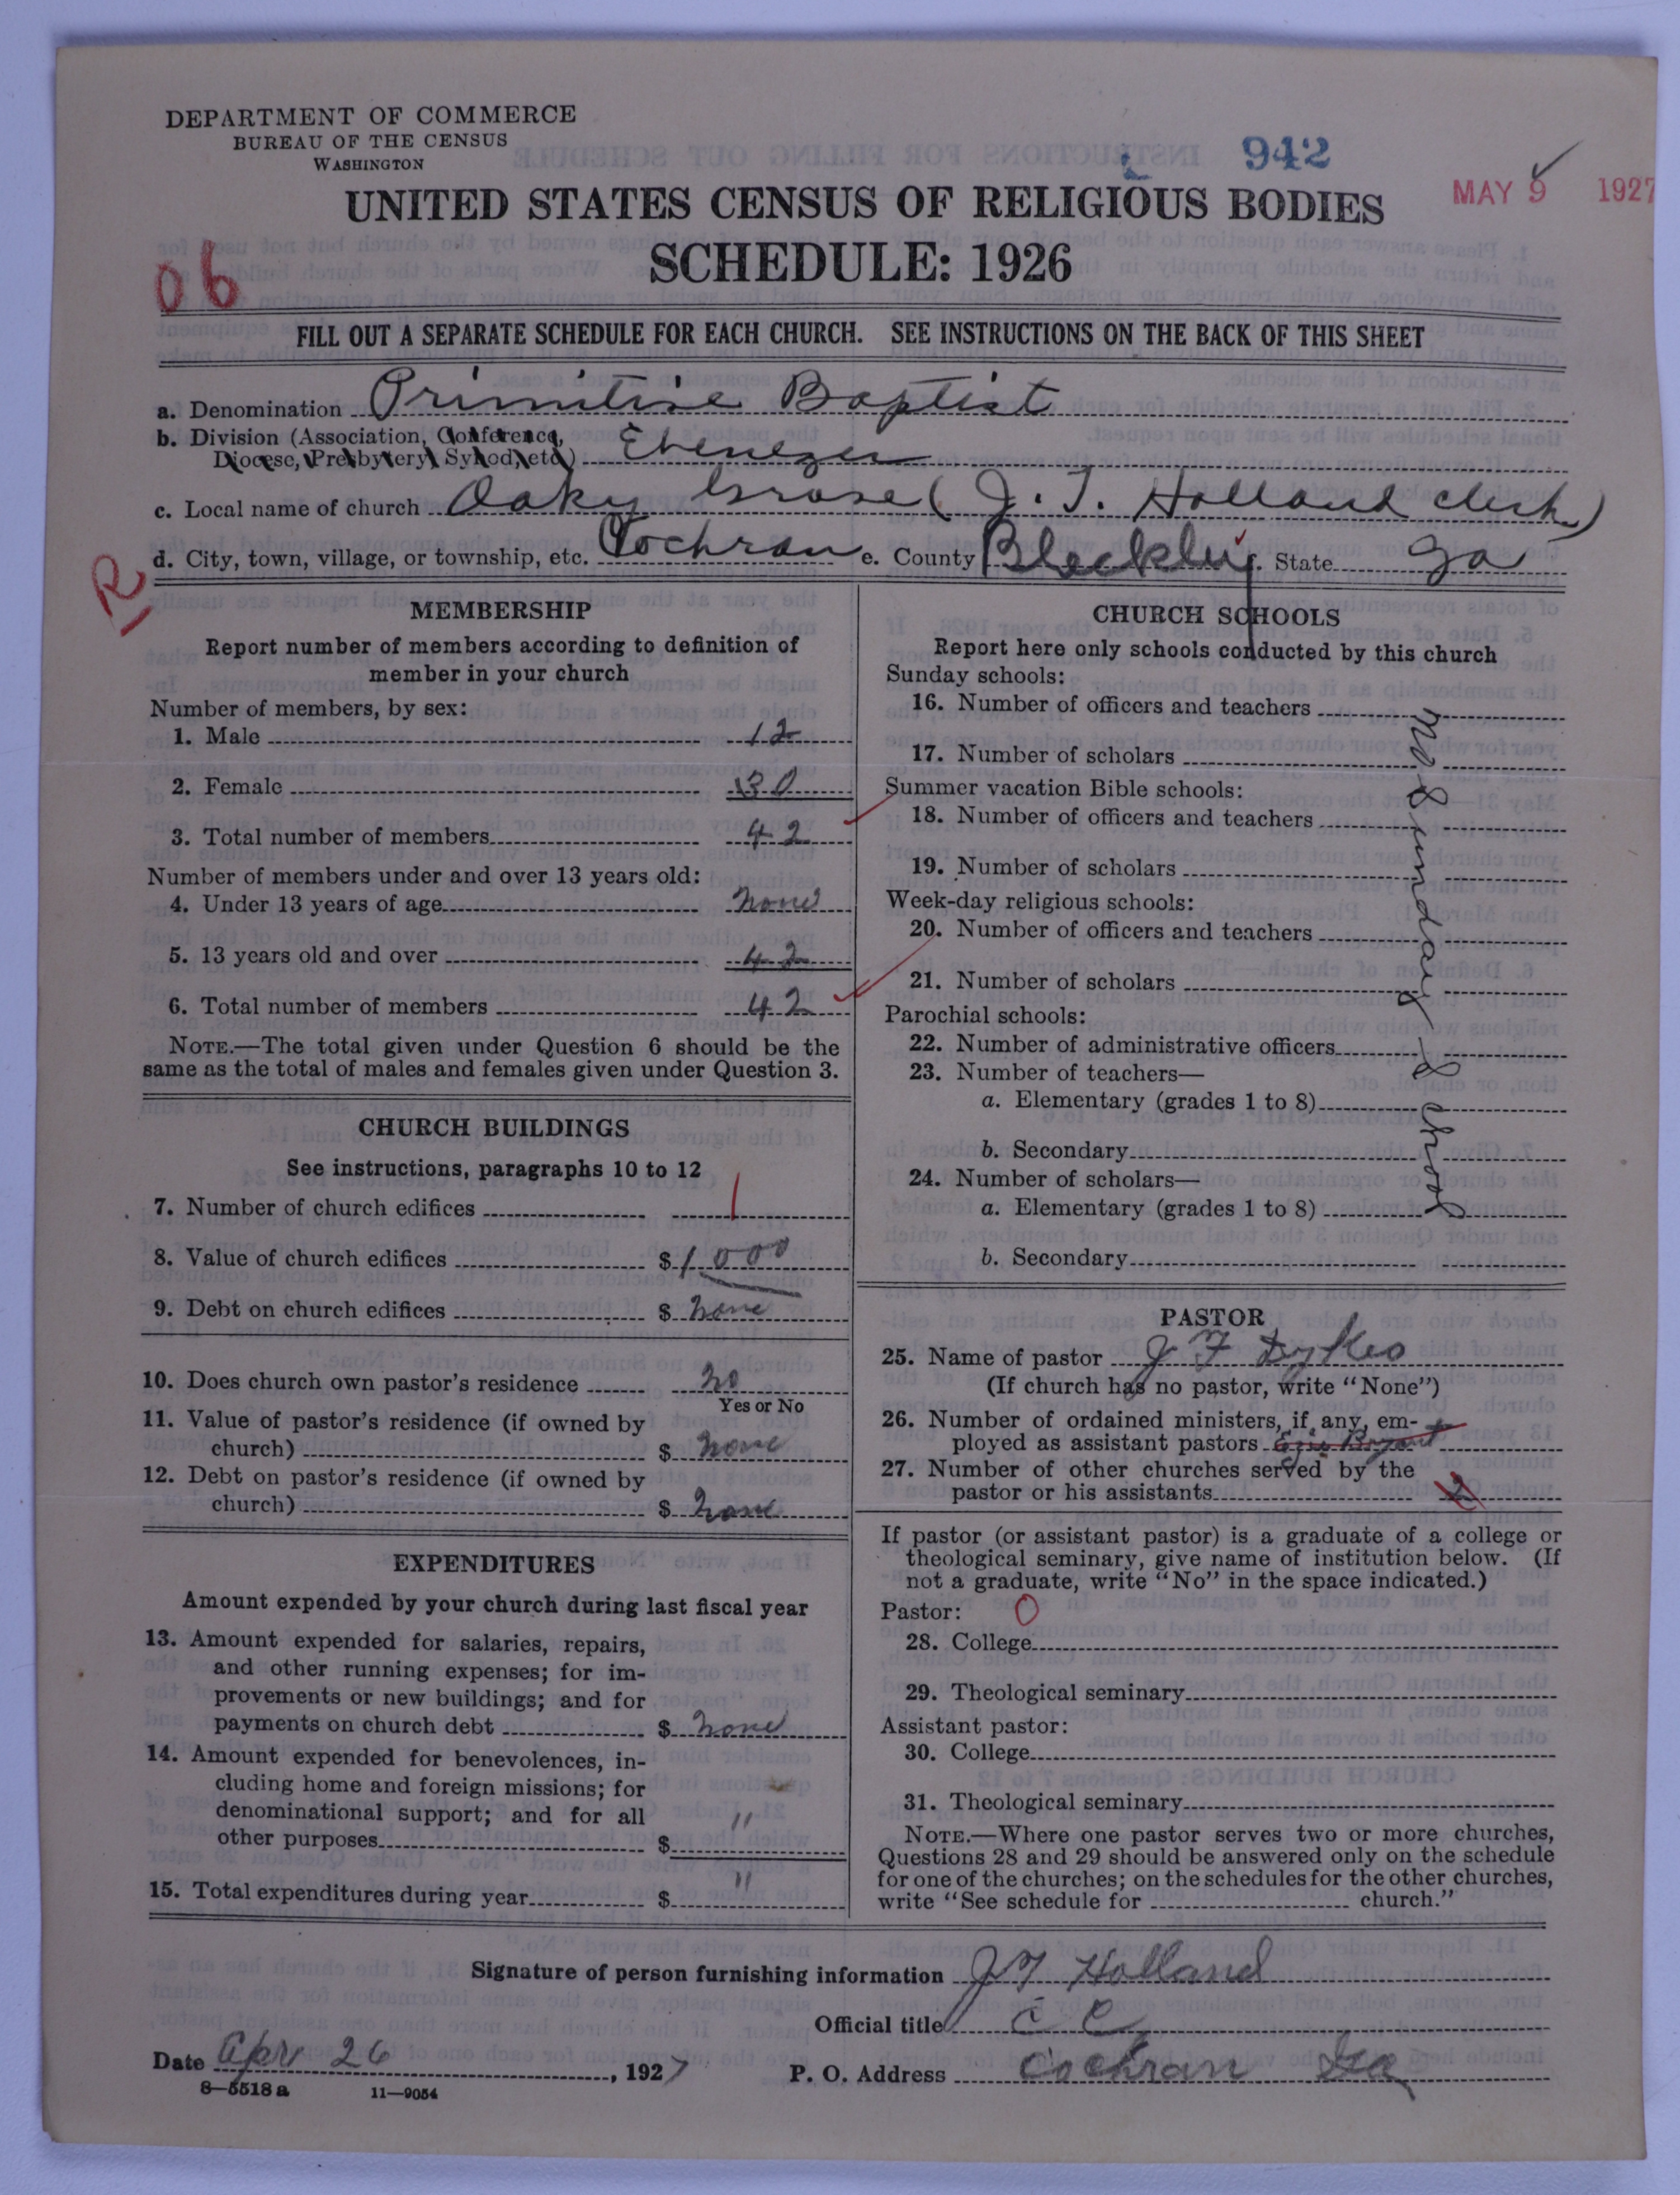 DEPARTMENT OF COMMERCE
BUREAU OF THE CENSUS
WASHINGTON
942
MAY 9 1927
UNITED STATES CENSUS OF RELIGIOUS BODIES
SCHEDULE: 1926
06
FILL OUT A SEPARATE SCHEDULE FOR EACH CHURCH. SEE INSTRUCTIONS ON THE BACK OF THIS SHEET
a. Denomination Primitive Baptist
b. Division (Association, Conference,
Diocese, Presbytery, Synod, etc.) Ebenezer
c. Local name of church Oaky Grove (J. T. Holland clerk)
d. City, town, village, or township, etc. Cochran e. County Bleckley f. State Ga
R
MEMBERSHIP
Report number of members according to definition of
member in your church
Number of members, by sex:
1. Male 12
2. Female 30
3. Total number of members 42
Number of members under and over 13 years old:
4. Under 13 years of age none
5. 13 years old and over 42
6. Total number of members 42
NOTE.—The total given under Question 6 should be the
same as the total of males and females given under Question 3.
CHURCH BUILDINGS
See instructions, paragraphs 10 to 12
7. Number of church edifices 1
8. Value of church edifices $ 1000
9. Debt on church edifices $ none
10. Does church own pastor's residence no
Yes or No
11. Value of pastor's residence (if owned by
church) $ none
12. Debt on pastor's residence (if owned by
church) $ none
EXPENDITURES
Amount expended by your church during last fiscal year
13. Amount expended for salaries, repairs,
and other running expenses; for im-
provements or new buildings; and for
payments on church debt $ none
14. Amount expended for benevolences, in-
cluding home and foreign missions; for
denominational support; and for all
other purposes $ "
15. Total expenditures during year $ "
CHURCH SCHOOLS
Report here only schools conducted by this church
Sunday schools:
16. Number of officers and teachers
17. Number of scholars
Summer vacation Bible schools:
18. Number of officers and teachers
19. Number of scholars
Week-day religious schools:
20. Number of officers and teachers
21. Number of scholars
Parochial schools:
22. Number of administrative officers
23. Number of teachers—
a. Elementary (grades 1 to 8)
b. Secondary
24. Number of scholars—
a. Elementary (grades 1 to 8)
b. Secondary
No Sunday School
PASTOR
25. Name of pastor J F Dykes
(If church has no pastor, write "None")
26. Number of ordained ministers, if any, em-
ployed as assistant pastors Bryant
27. Number of other churches served by the
pastor or his assistants 2
If pastor (or assistant pastor) is a graduate of a college or
theological seminary, give name of institution below. (If
not a graduate, write "No" in the space indicated.)
Pastor: 0
28. College
29. Theological seminary
Assistant pastor:
30. College
31. Theological seminary
NOTE.—Where one pastor serves two or more churches,
Questions 28 and 29 should be answered only on the schedule
for one of the churches; on the schedules for the other churches,
write "See schedule for church."
Signature of person furnishing information J T Holland
Official title C C
Date Apr 26, 1927 P. O. Address Cochran Ga
8—5518 a 11—9054